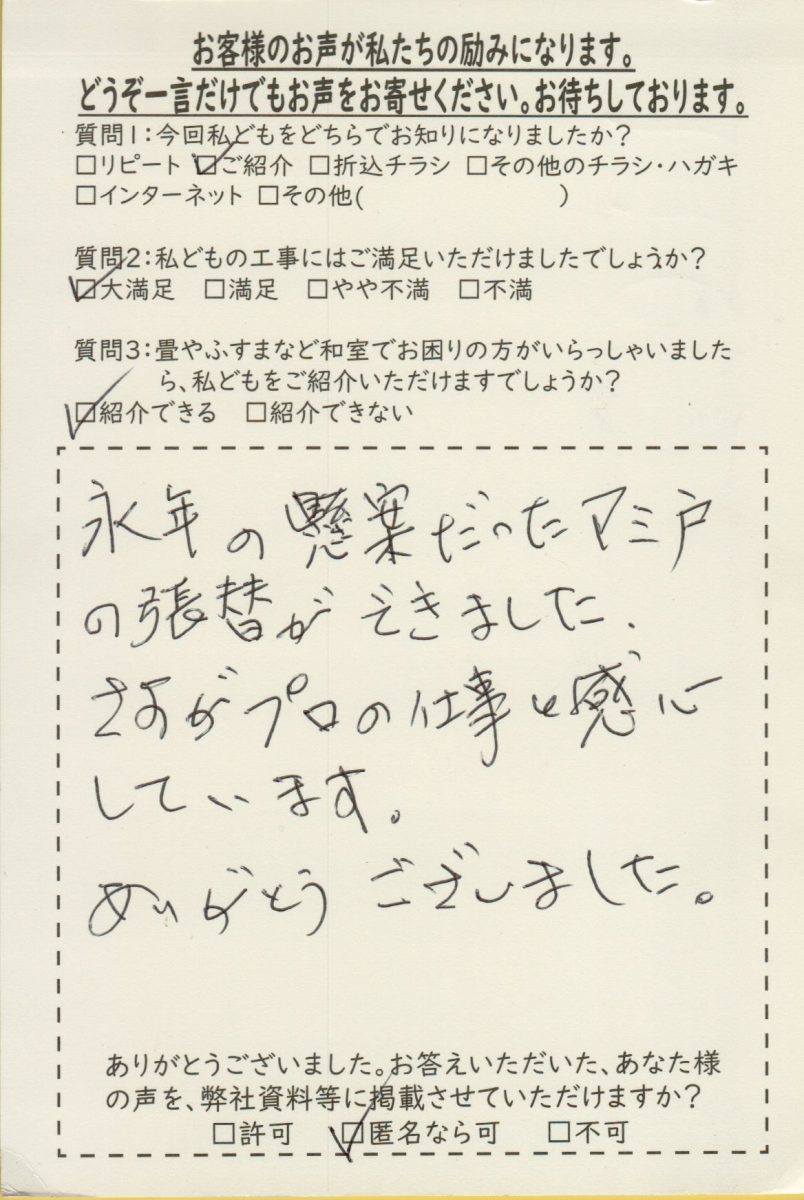 お客様のお声が私たちの励みになります。
どうぞ一言だけでもお声をお寄せください。お待ちしております。
質問1:今回私どもをどちらでお知りになりましたか?
□リピート ☑ご紹介 □折込チラシ □その他のチラシ・ハガキ
□インターネット □その他( )
質問2:私どもの工事にはご満足いただけましたでしょうか?
☑大満足 □満足 □やや不満 □不満
質問3:畳やふすまなど和室でお困りの方がいらっしゃいました
ら、私どもをご紹介いただけますでしょうか?
☑紹介できる □紹介できない
永年の懸案だったアミ戸
の張替ができました.
さすがプロの仕事と感心
しています。
ありがとうございました。
ありがとうございました。お答えいただいた、あなた様
の声を、弊社資料等に掲載させていただけますか?
□許可 ☑匿名なら可 □不可